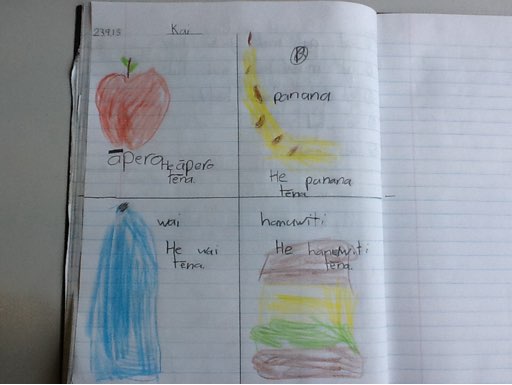 23.9.15
Kai
āpera
He āpera
tēna.
panana
He panana
tēna
wai
He wai
tēna.
hanuwiti
He hanuwiti
tēna.